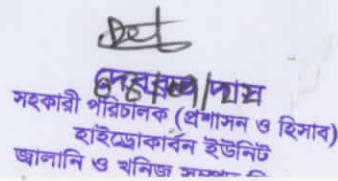 দেবব্রত দাস
সহকারী পরিচালক (প্রশাসন ও হিসাব)
হাইড্রোকার্বন ইউনিট
জ্বালানি ও খনিজ সম্পদ